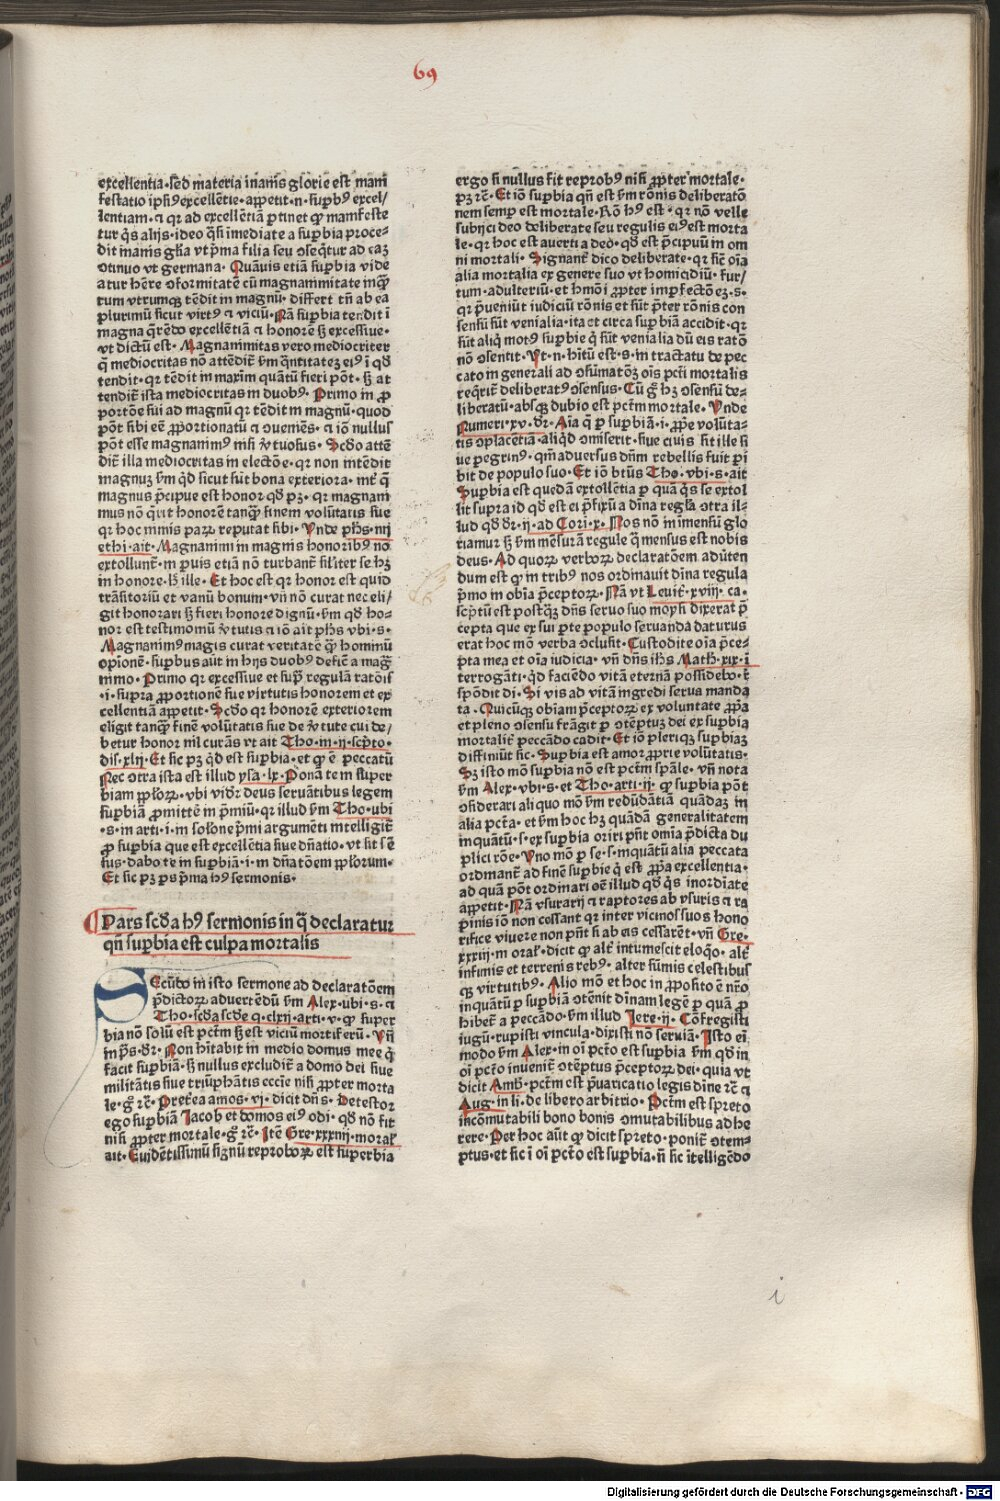 69
excellentia·sed materia inanis glorie est mani
festatio ipsiꝰ excellētie·appetit·n·suꝑbꝰ excel/
lentiam·⁊ qr ad excellētiā ꝑtinet ꝙ manifeste
tur q̄s alijs·ideo q̄si īmediate a suꝑbia proce-
dit inanis gl̄ia vt pͥma filia seu ↄseq̄tur ad eaꝫ
ↄtinuo vt germana· Quāuis etiā suꝑbia vide
atur hēre ↄformitatē cū magnanimitate inqͣꝫ
tum vtrumqꝫ tēdit in magnū· differt tn̄ ab ea
plurimū sicut virtꝰ ⁊ viciū· Nā suꝑbia tendit ī
magna q̄rēdo excellētiā ⁊ honorē sꝫ excessiue·
vt dictū est· Magnanimitas vero mediocriter
q̄ mediocritas nō attēdit᷑ sm̄ qͣntitateꝫ eiꝰ ī qd̄
tendit·qr tēdit in maxim̄ quātū fieri pōt· sꝫ at
tendit᷑ ista mediocritas in duobꝰ· Primo in ꝓ
portōe sui ad magnū qr tēdit in magnū·quod
pōt sibi eē ꝓportionatū ⁊ ↄueniēs· ⁊ iō nullus
pōt esse magnanimꝰ nisi v̓tuosus· Scd̄o attē
dit᷑ illa mediocritas in electōe·qr non intēdit
magnuꝫ sm̄ qd̄ sicut sūt bona exteriora· int᷑ q̄
magnus pͥncipue est honor qd̄ pꝫ· qr magnani
mus nō q̄rit honorē tanqͣꝫ finem volūtatis sue
qr hoc minis paꝝ reputat sibi· Vnde ph̄s·iiij
ethi·ait· Magnanimi in magnis honoribꝰ nō
extollunt᷑· in ꝑuis etiā nō turbant᷑ sil̄iter se hꝫ
in honore·lꝫ ille· Et hoc est qr honor est quid
trāsitoriū et vanū bonum·vn̄ nō curat nec eli/
git honorari sꝫ fieri honore dignū·sm̄ qd̄ ho-
nor est testimoniū v̓tutis ⁊ iō ait ph̄s vbi·s·
Magnanimꝰ magis curat veritatē qͣꝫ hominū
opionē·suꝑbus aūt in hijs duobꝰ defic̄ a magͣ
nimo· Primo qr excessiue et supͣ regulā ratōis
·i·supra ꝓportionē sue virtutis honorem et ex
cellentiā appetit· Scd̄o qr honorē exteriorem
eligit tanqͣꝫ finē volūtatis sue de v̓tute cui de/
betur honor nil curās vt ait Tho·in·ij·scpͥto·
dis·xlij· Et sic pꝫ qd̄ est suꝑbia·et ꝙ ē peccatū
Nec ↄtra ista est illud ysa·lx· Ponā te in suꝑ
biam ꝓl̄oꝝ·vbi vid̄r deus seruātibus legem
suꝑbiā ꝓmitte᷑ in pͥmiū·qr illud sm̄ Tho·ubi
·s·in arti·i·in sol̄one pͥmi argumēti intelligit᷑
ꝓ suꝑbia que est excellētia siue dn̄atio·vt sit sē
sus·dabo te in suꝑbiā·i·in dn̄atōem ꝓl̄orum·
Et sic pꝫ ps pͥma hꝰ sermonis·
Pars scd̄a hꝰ sermonis in q̄ declaratur
qn̄ suꝑbia est culpa mortalis
SEcūdo in isto sermone ad declaratōem
pͥdictoꝝ aduertēdū sm̄ Alex·ubi·s·⁊
Tho·scd̄a scd̄e q·clxij·arti·v·ꝙ super
bia nō solū est pctm̄ sꝫ est viciū mortiferū· Vn̄
in ps·dr̄· Non hītabit in medio domus mee q̄
facit suꝑbiā·sꝫ nullus excludit᷑ a domo dei siue
militātis siue triūphātis eccīe nisi ꝓpter morta
le·gͦ rc̄· Preteͣ amos·vi·dicit dn̄s· Detestor
ego suꝑbiā Jacob et domos eiꝰ odi· qd̄ nō fit
nisi ꝓpter mortale·gͦ rc̄· Itē Gre·xxxiiij·moral᷑
ait· Euidētissimū signū reproboꝝ est suꝑbia
ergo si nullus sit reprobꝰ nisi ꝓpter mortale·
pꝫ rc̄· Et iō suꝑbia qn̄ est sm̄ rōnis deliberatō
nem semꝑ est mortale·Rō hꝰ est·qr nō velle
subijci deo deliberate seu regulis eiꝰ est morta
le·qr hoc est auerti a deo·qd̄ est pͥncipuū in om
ni mortali· Signant᷑ dico deliberate·qr sic̄ oīa
alia mortalia ex genere suo vt homicidiū· fur/
tum·adulteriū·et hm̄oi ꝓpter imꝑfectōeꝫ·s·
qr pͥueniūt iudiciū rōnis et sūt pͥter rōnis con
sensū sūt venialia·ita et circa suꝑbiā accidit·qr
sūt aliq̄ motꝰ suꝑbie q̄ sūt venialia dū eis ratō
nō ↄsentit· Vt·n·hītū est·s·in tractatu de pec
cato in generali ad ↄsūmatōꝫ oīs pcti mortalis
req̄rit᷑ deliberatꝰ ↄsensus· Cū gͦ hꝫ ↄsensū de-
liberatū·absqꝫ dubio est pctm̄ mortale· Vnde
Numeri·xv·dr̄· Aīa q̄ ꝑ suꝑbiā·i·ꝓpe volūta-
tis ↄplacētiā·aliqd̄ ↄmiserit·siue ciuis sit ille si
ue peregrinꝰ·qm̄ aduersus dn̄m rebellis fuit ꝑi
bit de populo suo· Et iō btūs Tho·vbi·s·ait
Suꝑbia est quedā extollētia ꝑ quā q̄s se extol
lit supra id qd̄ est ei pͥfixū a dīna regl̄a ↄtra il-
lud qd̄ dr̄·ij·ad Cori·x· Nos nō in īmensū glo
riamur sꝫ sm̄ mēsurā regule q̄ mensus est nobis
deus· Ad quoꝝ verboꝝ declaratōem aduten
dum est ꝙ in tribꝰ nos ordinauit dīna regula
pͥmo in obīa pͥceptoꝝ· Nā vt Leuit᷑·xviij·ca·
scpͥtū est postqͣꝫ dn̄s seruo suo moysi dixerat pͥ
cepta que ex sui ꝑte populo seruanda daturus
erat hoc mō verba ↄclusit· Custodite oīa pͥce-
pta mea et oīa iudicia· vn̄ dn̄s ih̄s Math·xix·ī
terrogāti·qd̄ faciēdo vitā eternā possidebo·r̄
spōdit di· Si vis ad vitā ingredi serua manda
ta· Quicūqꝫ obīam pͥceptoꝝ ex voluntate ꝓpͥa
et pleno ↄsensu frāgit ꝑ ↄtēptuꝫ dei ex suꝑbia
mortalit᷑ peccādo cadit· Et iō pleriqꝫ suꝑbiaꝫ
diffiniūt sic· Suꝑbia est amor ꝓprie volūtatis·
Sꝫ isto mō suꝑbia nō est pctm̄ spāle· vn̄ nota
sm̄ Alex·vbi·s·et Tho·arti·ij· ꝙ suꝑbia pōt
ↄsiderari aliquo mō sm̄ redūdātiā quādaꝫ in
alia pctā·et sm̄ hoc hꝫ quādā generalitatem
inquātū·s·ex suꝑbia oriri pn̄t omīa pͥdicta du
plici rōne· Vno mō ꝑ se·s·inquātū alia peccata
ordinant᷑ ad finē suꝑbie q̄ est ꝓpͥa excellentia·
ad quā pōt ordinari oē illud qd̄ q̄s inordīate
appetit· Nā vsurarij ⁊ raptores ab vsuris ⁊ ra
pinis iō non cessant qr inter vicinos suos hono
rifice viuere non pn̄t si ab eis cessarēt·vn̄ Gre·
xxxiij·in moral᷑·dicit ꝙ alt᷑ intumescit eloqͦ· alt᷑
infimis et terrenis rebꝰ· alter sūmis celestibus
qꝫ virtutibꝰ· Alio mō et hoc in ꝓposito ē nr̄o·
inquātū ꝑ suꝑbiā ↄtēnit᷑ dīnam legē ꝑ quā ꝓ
hibet᷑ a peccādo·sm̄ illud Jere·ij· Cōfregisti
iugū·rupisti vincula·dixisti nō seruiā· Isto eī
modo sm̄ Alex·in oī pctō est suꝑbia sm̄ qd̄ in
oī pctō inuenit᷑ ↄtēptus pͥceptoꝝ dei·quia vt
dicit Amb̄·pctm̄ est pͥuaricatio legis dīne rc̄ ⁊
Aug·in li·de libero arbitrio· Pctm̄ est spreto
incōmutabili bono bonis ↄmutabilibus adhe
rere· Per hoc aūt ꝙ dicit spreto·ponit᷑ ↄtem-
ptus·et sic ī oī pctō est suꝑbia·n̄ sic ītelligēdo
i
Digitalisierung gefördert durch die Deutsche Forschungsgemeinschaft · DFG